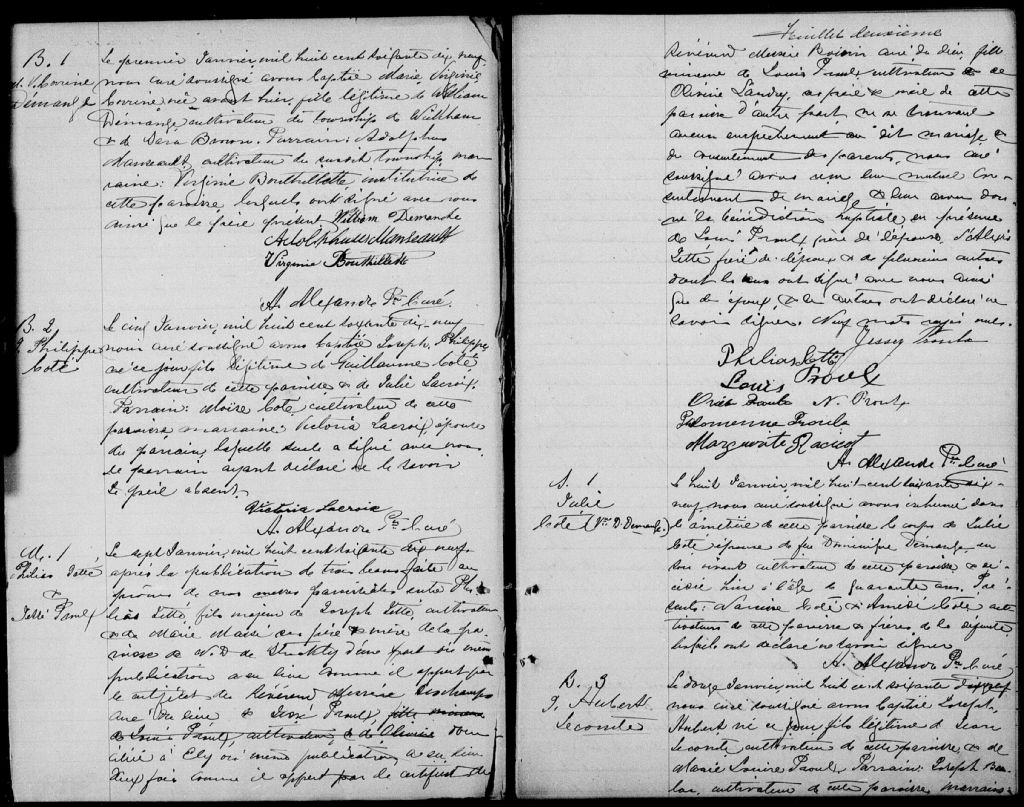 B. 1
M. V. Corinne
Demange
Le premier Janvier, mil huit cent soixante dix neuf
nous curé soussigné avons baptisé Marie Virginie
Corrine née avant hier, fille légitime de William
Demange cultivateur du township de Wickham
& de Parrain: Adolphus
Manseault cultivateur du susdit township, mar
raine: Virginie Bouthillette institutrice de
cette paroisse lesquels ont signé avec nous
ainsi que le père présent William Demanche
Adolphus Manseault
Virginie Bouthillette
A. Alexandre Ptre Curé.
B. 2
J. Philippe
Coté
Le cinq Janvier, mil huit cent soixante dix neuf
nous curé soussigné avons baptisé Joseph Philippe,
né ce jour fils légitime de Guillaume Coté,
cultivateur de cette paroisse & de Julie Lacroix.
Parrain: Moïse Coté cultivateur de cette
paroisse marraine: Victoria Lacroix épouse
du parrain laquelle seule a signé avec nous
le parrain ayant déclaré ne le savoir
Le père absent.
Victoria Lacroix
A. Alexandre Ptre Curé
M. 1
Philias Jetté
&
Proulx
Le sept Janvier, mil huit cent soixante dix neuf
après la publication de trois bans faite au
prône de nos messes paroissiales entre Phi
lias Jetté, fils majeur de Joseph Jetté, cultivateur
& de Marie ses père & mère de la pa
roisse de N. D. de d'une part où même
publication a eu lieu comme il appert par
le certificat du Révérend Messire Deschamps
curé du lieu & Proulx, fille mineure
de Louis Proulx, cultivateur, & de Olivine dom
iciliée à Ely où même publication a eu lieu
deux fois comme il appert par le certificat de
Feuillet deuxième
Révérend Messire curé du lieu, fille
mineure de Louis Proulx cultivateur & de
Olivine Landry, ses père & mère de cette
paroisse d'autre part ne se trouvant
aucun empêchement au dit mariage &
du consentement des parents, nous curé
soussigné avons reçu leur mutuel con
sentement de mariage & leur avons don
né la bénédiction nuptiale en présence
de Louis Proulx père de l'épouse, d'Alexis
Jetté père de l'époux & de plusieurs autres
dont les uns ont signé avec nous ainsi
que les époux & les autres ont déclaré ne
savoir signer. Neuf mots rayés nuls.
Philias Jetté
Louis Proulx
N. Proulx
Philomenne
Marguerite Racicot
A. Alexandre Ptre Curé
S. 1
Julie
Coté (Vve D. Demange.)
Le huit Janvier, mil huit cent soixante dix
neuf, nous curé soussigné avons inhumé dans
le cimetière de cette paroisse le corps de Julie
Coté épouse de feu Dominique Demange en
son vivant cultivateur de cette paroisse & dé
cédée hier à l'âge de quarante ans. Pré
sents: Narcisse Coté & Amédé Coté culti
vateurs de cette paroisse & frères de la défunte,
lesquels ont déclaré ne savoir signer
A. Alexandre Ptre Curé
B. 3
J. Hubert
Lecomte
Le douze Janvier, mil huit cent soixante dix neuf
nous curé soussigné avons baptisé Joseph,
Hubert né ce jour fils légitime de Jean
Lecomte cultivateur de cette paroisse & de
Marie Louise Proulx. Parrain: Joseph
cultivateur de cette paroisse marraine: